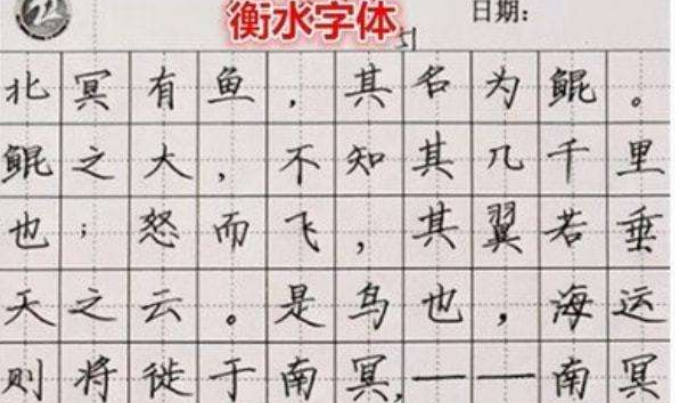 衡水字体
日期:
51
北冥有鱼，其名为鲲。
鲲之大，不知其几千里
也；怒而飞，其翼若垂
天之云。是鸟也，海运
则将徙于南冥，——南冥